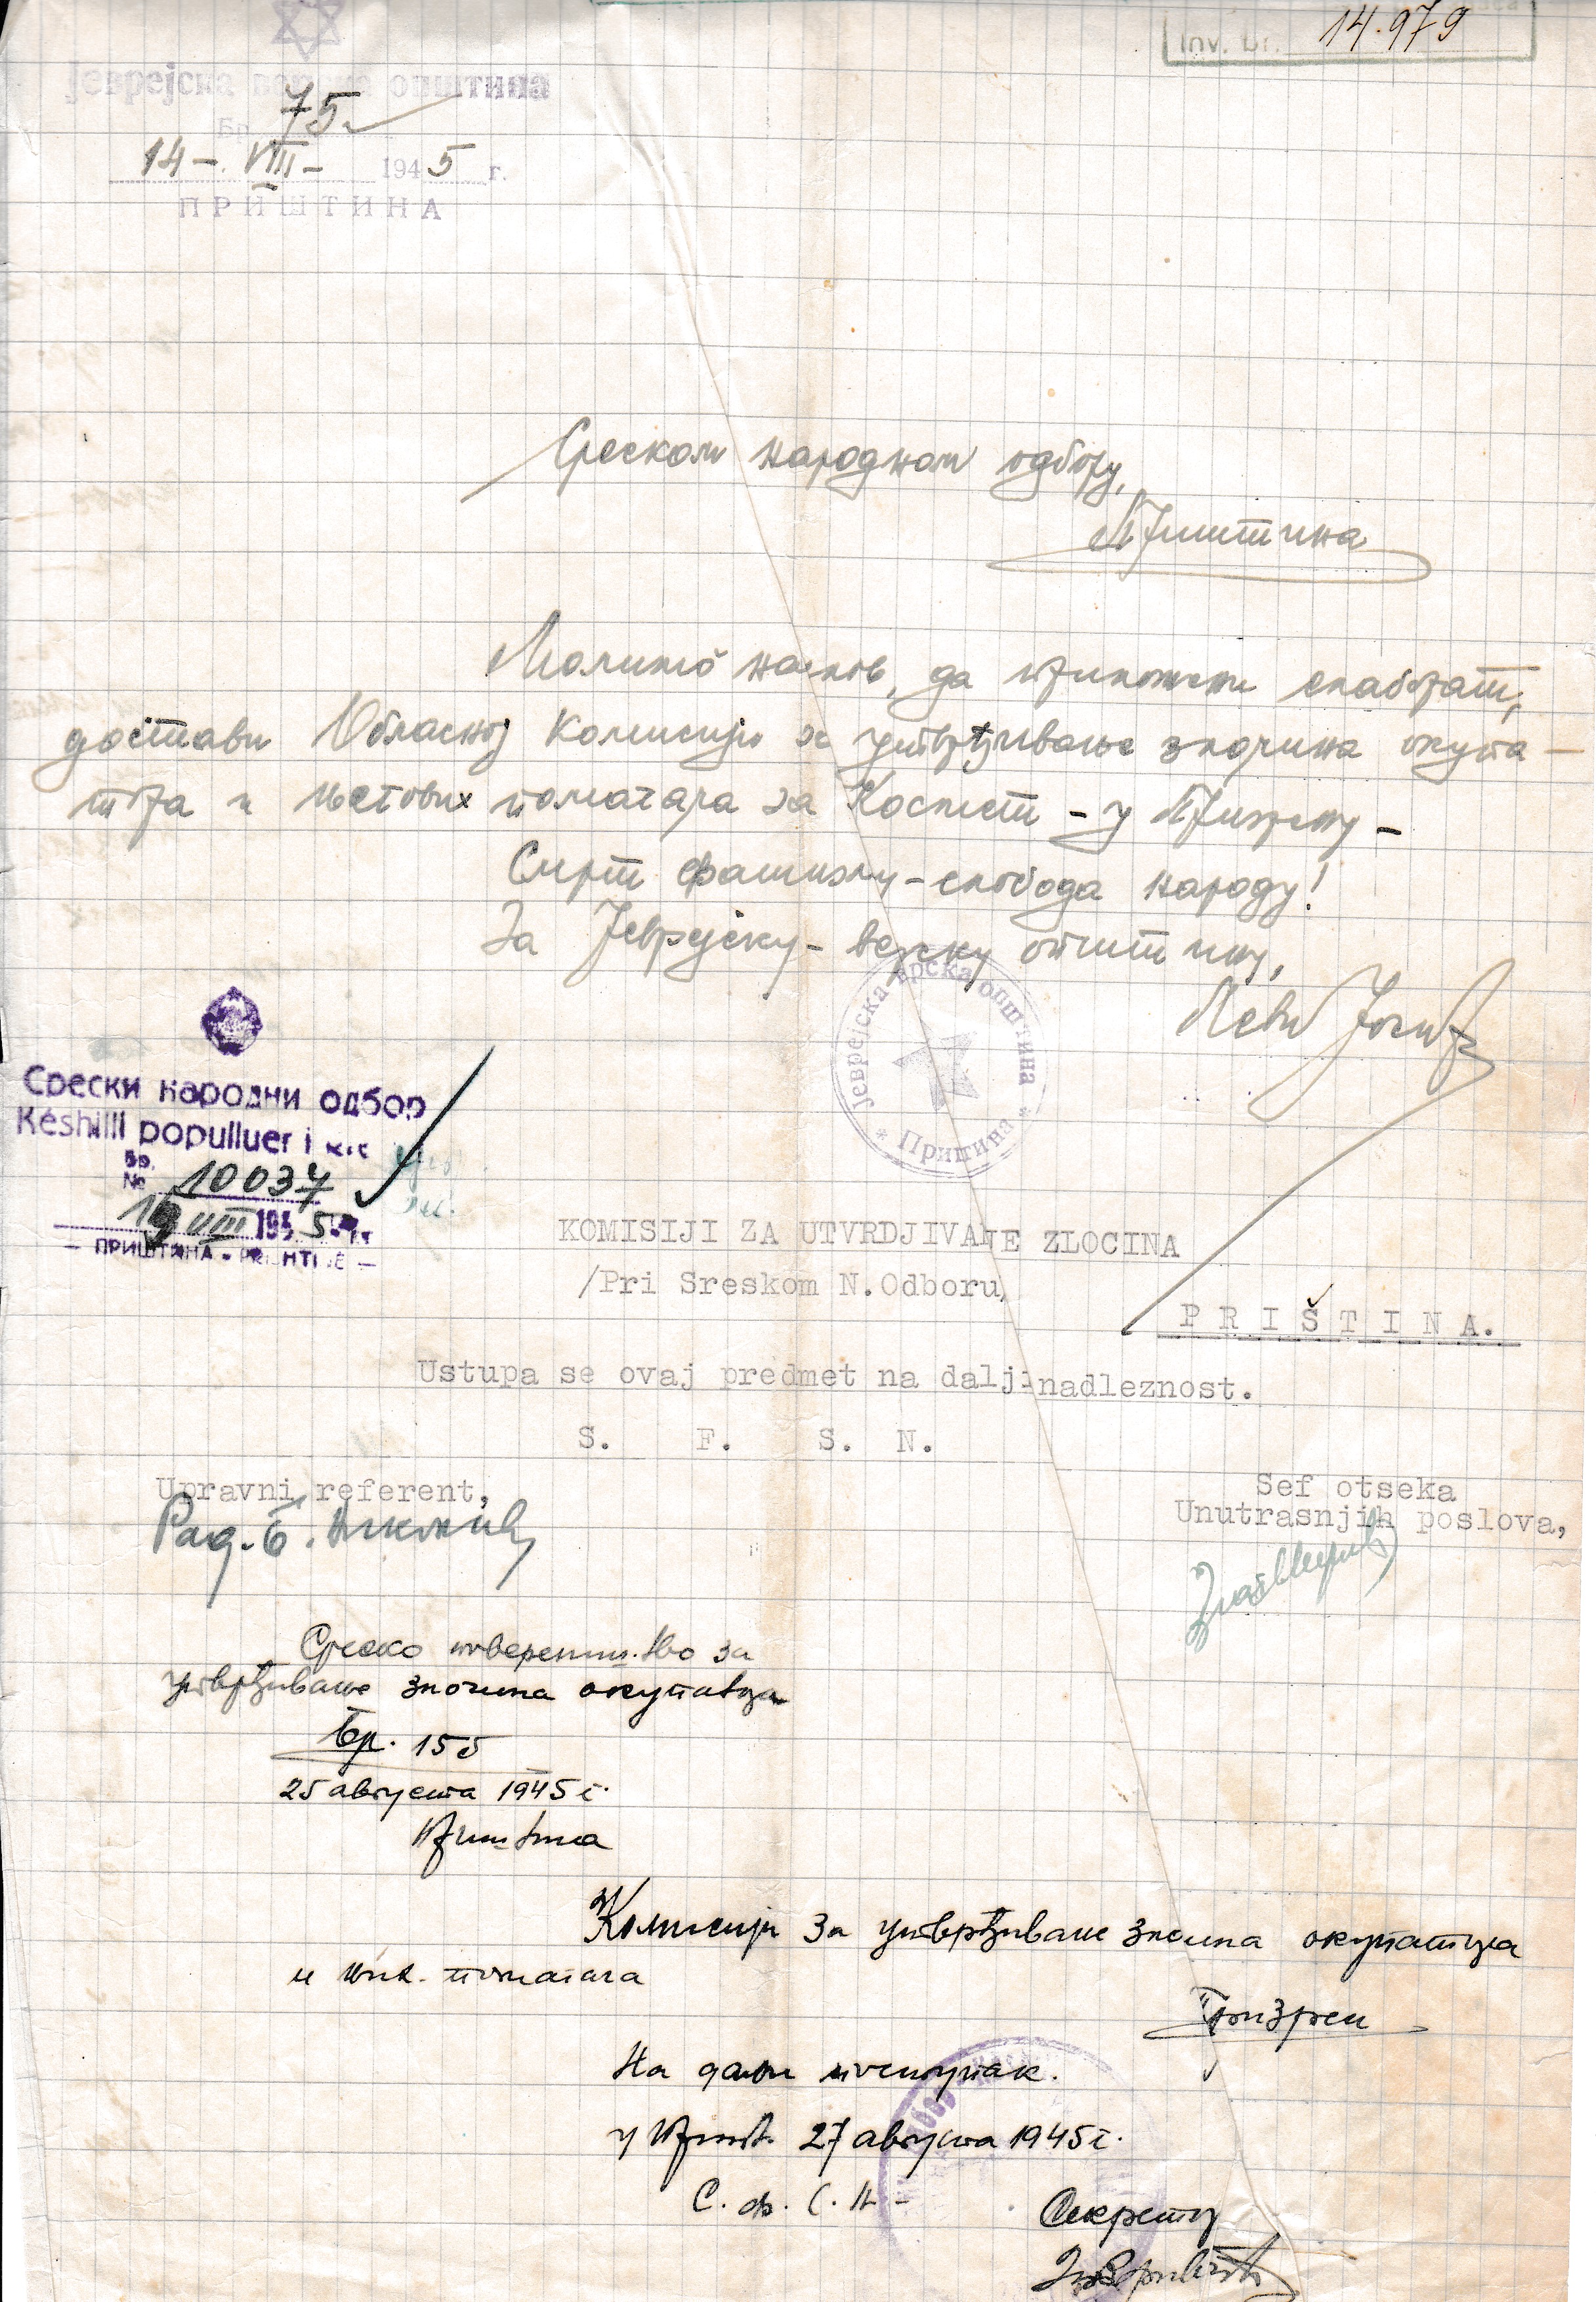 Inv. br. 14.979
Јеврејска верска општина
Бр. 75
14-VIII- 1945 г.
ПРИШТИНА
Среском народном одбору,
Приштина
Молимо наслов, да приложени елаборат,
достави Обласној Комисији за утврђивање злочина окупа-
тора и његових помагача за Космет - у Призрену -
Смрт фашизму - слобода народу!
За Јеврејску - верску општину,
Леви Јосиф
Јеврејска врска општина
* Приштина *
Срески народни одбор
Këshilli populluer i
Бр.
No 10037
19 VIII 1945
ПРИШТИНА - PRISHTINË
KOMISIJI ZA UTVRDJIVANJE ZLOCINA
/Pri Sreskom N.Odboru
PRIŠTINA.
Ustupa se ovaj predmet na dalji nadleznost.
S. F. S. N.
Upravni referent,
Sef otseka
Unutrasnjih poslova,
Рад. Б.
Среско за
утврђивање злочина окупатора
Бр. 155
25 августа 1945 г.
Приштина
Комисији за утврђивање злочина окупатора
и помагача
Призрен
На даљи поступак.
у Пришт. 27 августа 1945 г.
С. ф. С. Н -
Секретар